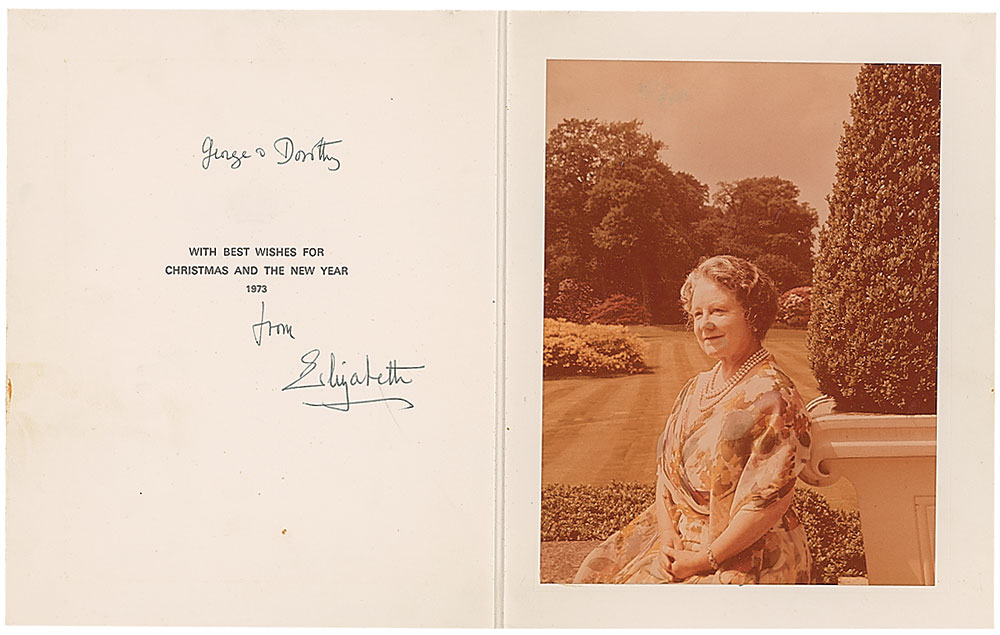 George & Dorothy
WITH BEST WISHES FOR
CHRISTMAS AND THE NEW YEAR
1973
from
Elizabeth